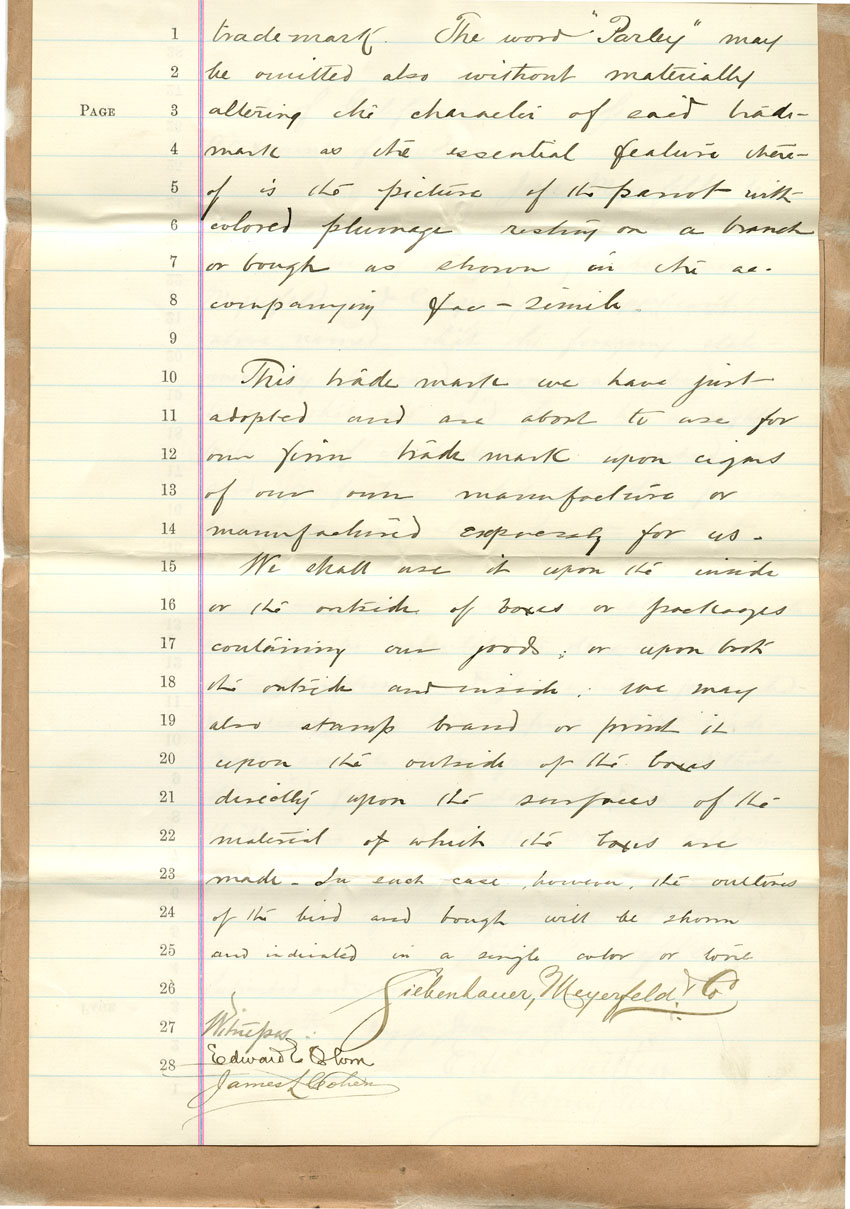 1 trademark. The word "Parley" may
2 be omitted also without materially
PAGE 3 altering the character of said trade-
4 mark as the essential feature there-
5 of is the picture of the parrot with
6 colored plumage resting on a branch
7 or bough as shown in the ac-
8 companying fac-simile.
9
10 This trade mark we have just
11 adopted and are about to use for
12 our firm trade mark upon cigars
13 of our own manufacture or
14 manufactured expressly for us.
15 We shall use it upon the inside
16 or the outside of boxes or packages
17 containing our goods; or upon both
18 the outside and inside; we may
19 also stamp brand or print it
20 upon the outside of the boxes
21 directly upon the surfaces of the
22 material of which the boxes are
23 made. In such case, however, the outlines
24 of the bird and bough will be shown
25 and indicated in a single color or tone
26 Siebenhauer, Meyerfeld & Co
27 Witness:
28 Edward E
James L Cohen